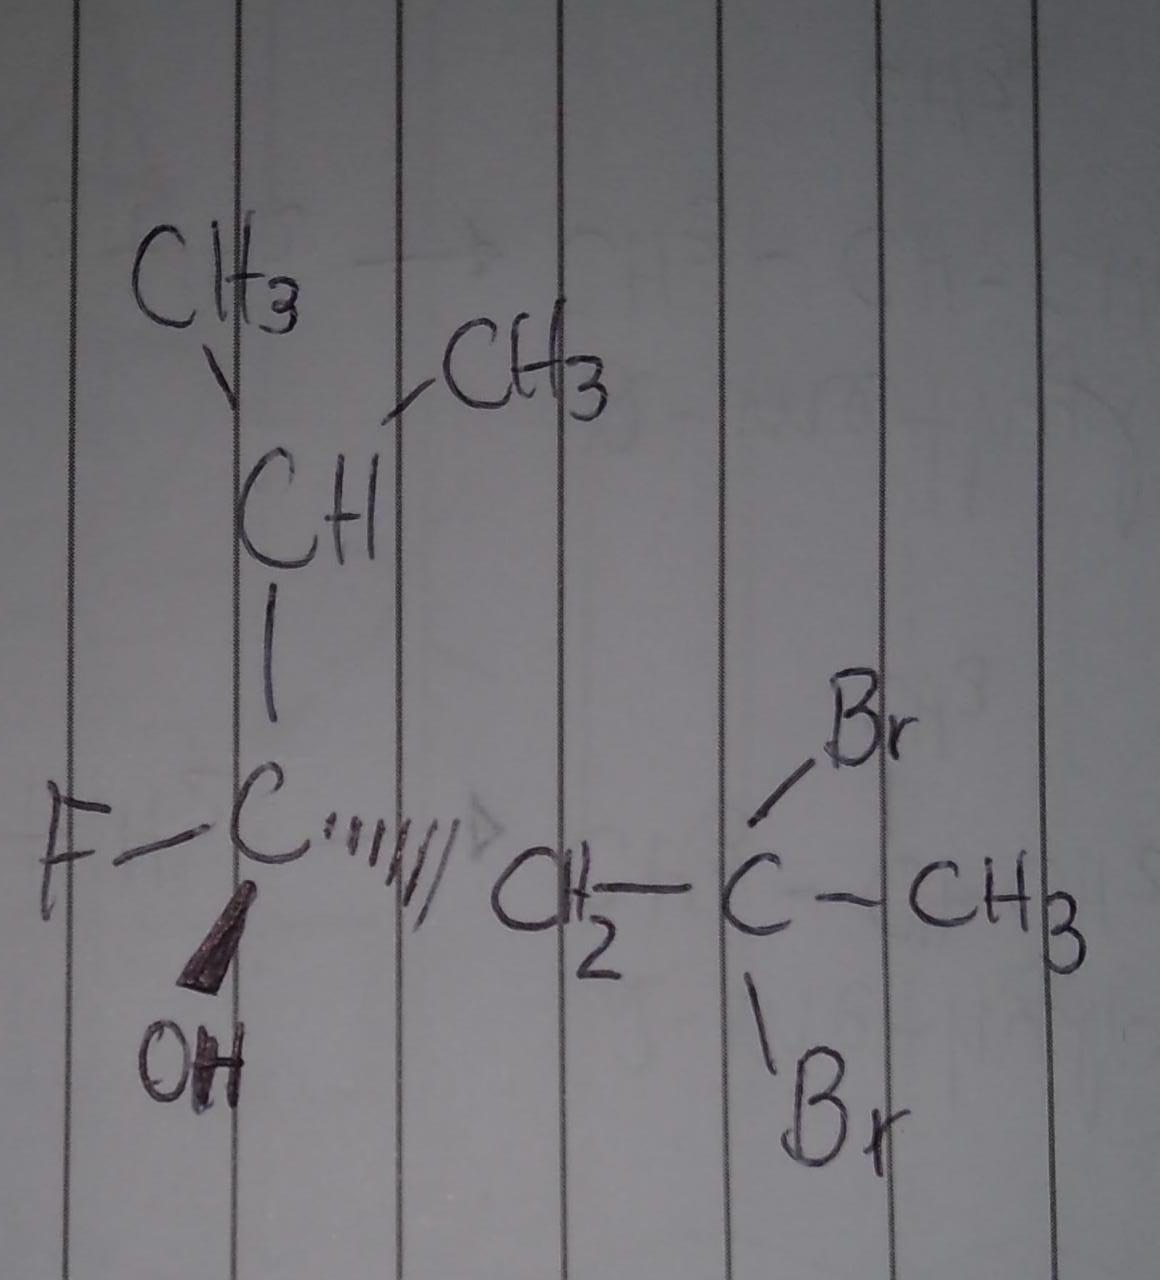 CH3
CH3
CH
Br
F C CH2 C CH3
OH
Br